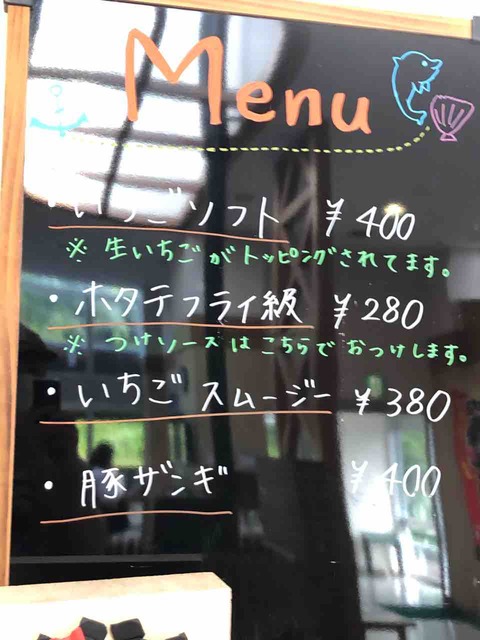 Menu
・いちごソフト ¥400
※ 生いちごがトッピングされてます。
・ホタテフライ級 ¥280
※ つけソースはこちらでおつけします。
・いちごスムージー ¥380
・豚ザンギ ¥400